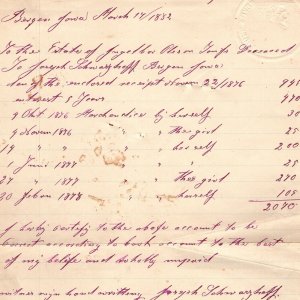 Bergen Iowa March 17/1882
To the Estate of Ingeber Olson Deceased
To Joseph Schwarzhoff Bergen Iowa
the enclosed receipt Novem 22/1876 940
interest 5 Years 470
9 Oht 1876 Merchandice by herself 30
9 Novem 1876 " " " ther girl 25
19 " " " " her self 200
1 Juni 1877 " " 25
27 " 1877 " " ther girl 270
20 1878 " " herself 105
2070
I herby certify to the above account to be
according to book account to the best
of my belife and wholly unpaid
witnes my hand writting Joseph Schwarzhoff